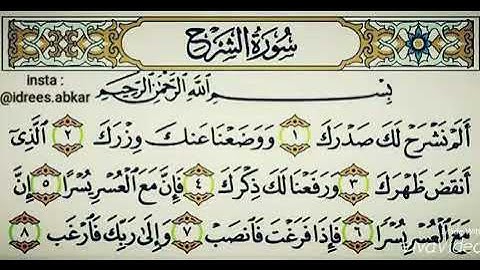 سُورَةُ الشَّرْحِ
insta :
@idrees.abkar
بِسْمِ اللَّهِ الرَّحْمَٰنِ الرَّحِيمِ
أَلَمْ نَشْرَحْ لَكَ صَدْرَكَ ١ وَوَضَعْنَا عَنكَ وِزْرَكَ ٢ الَّذِي
أَنقَضَ ظَهْرَكَ ٣ وَرَفَعْنَا لَكَ ذِكْرَكَ ٤ فَإِنَّ مَعَ الْعُسْرِ يُسْرًا ٥ إِنَّ
مَعَ الْعُسْرِ يُسْرًا ٦ فَإِذَا فَرَغْتَ فَانصَبْ ٧ وَإِلَىٰ رَبِّكَ فَارْغَب ٨
VivaVideo